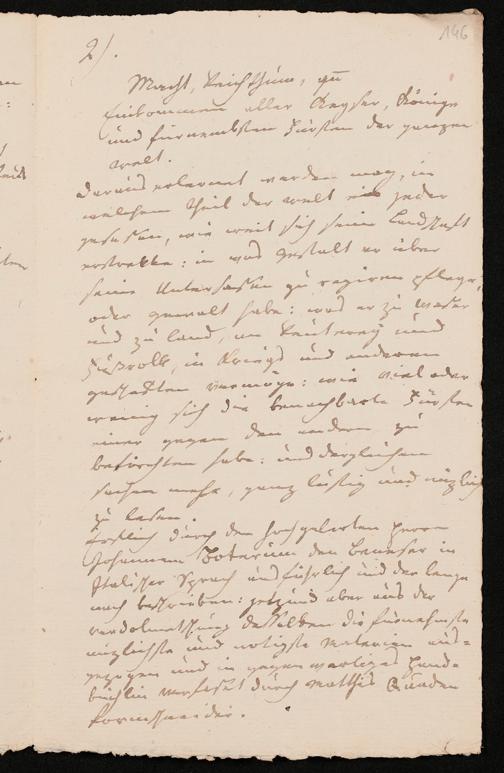 146
2).
Macht, Reichthum, und
Einkommen aller Keyser, Könige
und fürnembsten Fürsten der ganzen
welt.
Daraus erlernet werden mag, in
welchem theil der welt ein jeder
gesessen, wie weit sich seine Landschafft
erstrekke: in was gestalt er über
seine Untersassen zu regiren pflege,
oder gewalt habe: was er zu wasser
und zu land, an Reuterey und
Fußvolk, in Kriegs und anderen
geschäften vermöge: wie viel oder
wenig sich die benachbarte Fürsten
einer gegen den andern zu
befürchten habe: und dergleichen
sachen mehr, ganz lustig und nüzlich
zu lesen.
Erstlich durch den hochgelerten Herrn
Johannem Boterum den Beneser in
Italischer Sprach ausführlich und der lenge
nach beschrieben: jezund aber aus der
verdolmetschung desselben die fürnehmste
nüzlichste und notigste materien aus-
gezogen und in gegenwertiges Hand-
büchlin verfasset durch Matthis Quaden
formschneider.